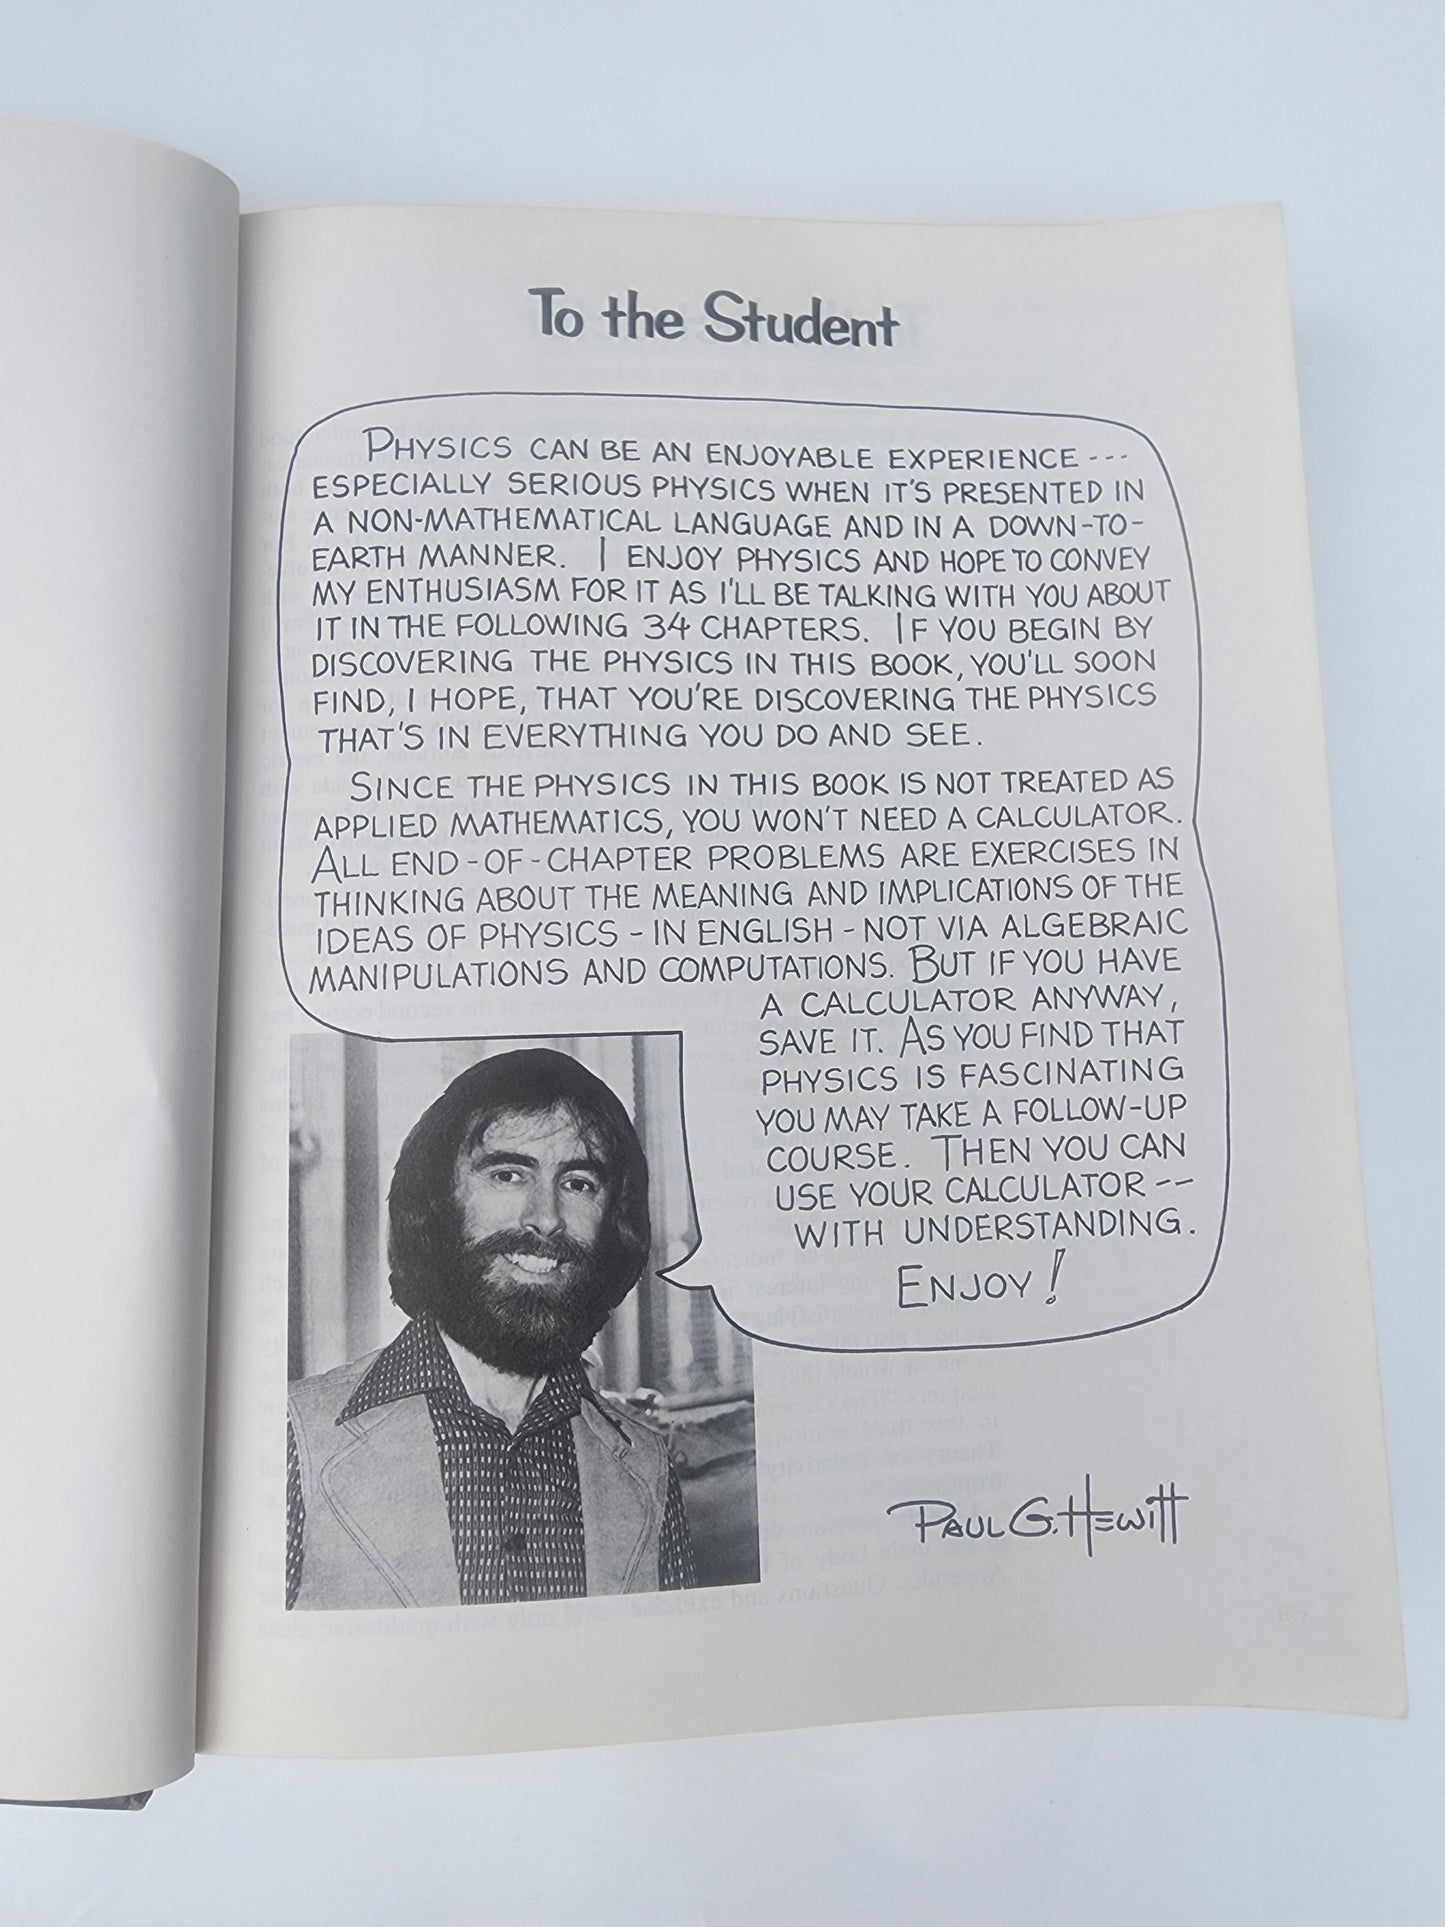 To the Student
PHYSICS CAN BE AN ENJOYABLE EXPERIENCE ---
ESPECIALLY SERIOUS PHYSICS WHEN IT'S PRESENTED IN
A NON-MATHEMATICAL LANGUAGE AND IN A DOWN-TO-
EARTH MANNER. I ENJOY PHYSICS AND HOPE TO CONVEY
MY ENTHUSIASM FOR IT AS I'LL BE TALKING WITH YOU ABOUT
IT IN THE FOLLOWING 34 CHAPTERS. IF YOU BEGIN BY
DISCOVERING THE PHYSICS IN THIS BOOK, YOU'LL SOON
FIND, I HOPE, THAT YOU'RE DISCOVERING THE PHYSICS
THAT'S IN EVERYTHING YOU DO AND SEE.
SINCE THE PHYSICS IN THIS BOOK IS NOT TREATED AS
APPLIED MATHEMATICS, YOU WON'T NEED A CALCULATOR.
ALL END-OF-CHAPTER PROBLEMS ARE EXERCISES IN
THINKING ABOUT THE MEANING AND IMPLICATIONS OF THE
IDEAS OF PHYSICS - IN ENGLISH - NOT VIA ALGEBRAIC
MANIPULATIONS AND COMPUTATIONS. BUT IF YOU HAVE
A CALCULATOR ANYWAY,
SAVE IT. AS YOU FIND THAT
PHYSICS IS FASCINATING
YOU MAY TAKE A FOLLOW-UP
COURSE. THEN YOU CAN
USE YOUR CALCULATOR --
WITH UNDERSTANDING.
ENJOY!
PAUL G. HEWITT
viii